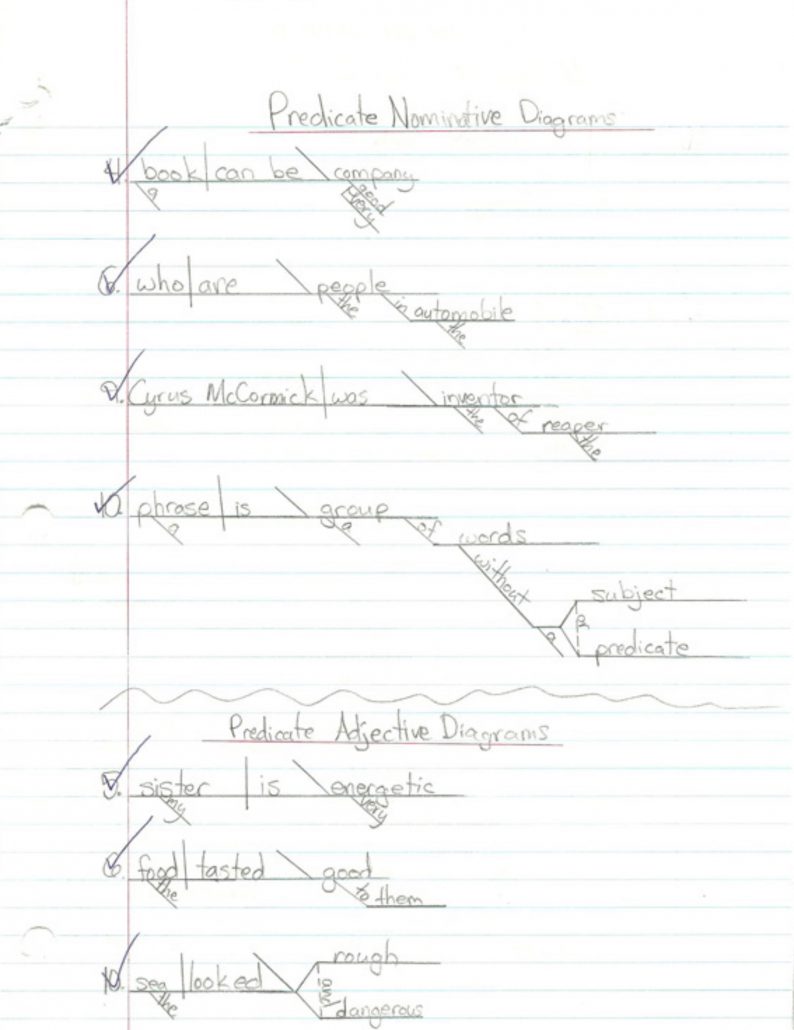 Predicate Nominative Diagrams
4. book can be company
a good very
6. who are people
the in automobile
the
9. Cyrus McCormick was inventor
the of reaper
the
10. phrase is group
a a of words
without
subject
a &
predicate
Predicate Adjective Diagrams
5. sister is energetic
my very
6. food tasted good
the to them
rough
10. sea looked and
the dangerous